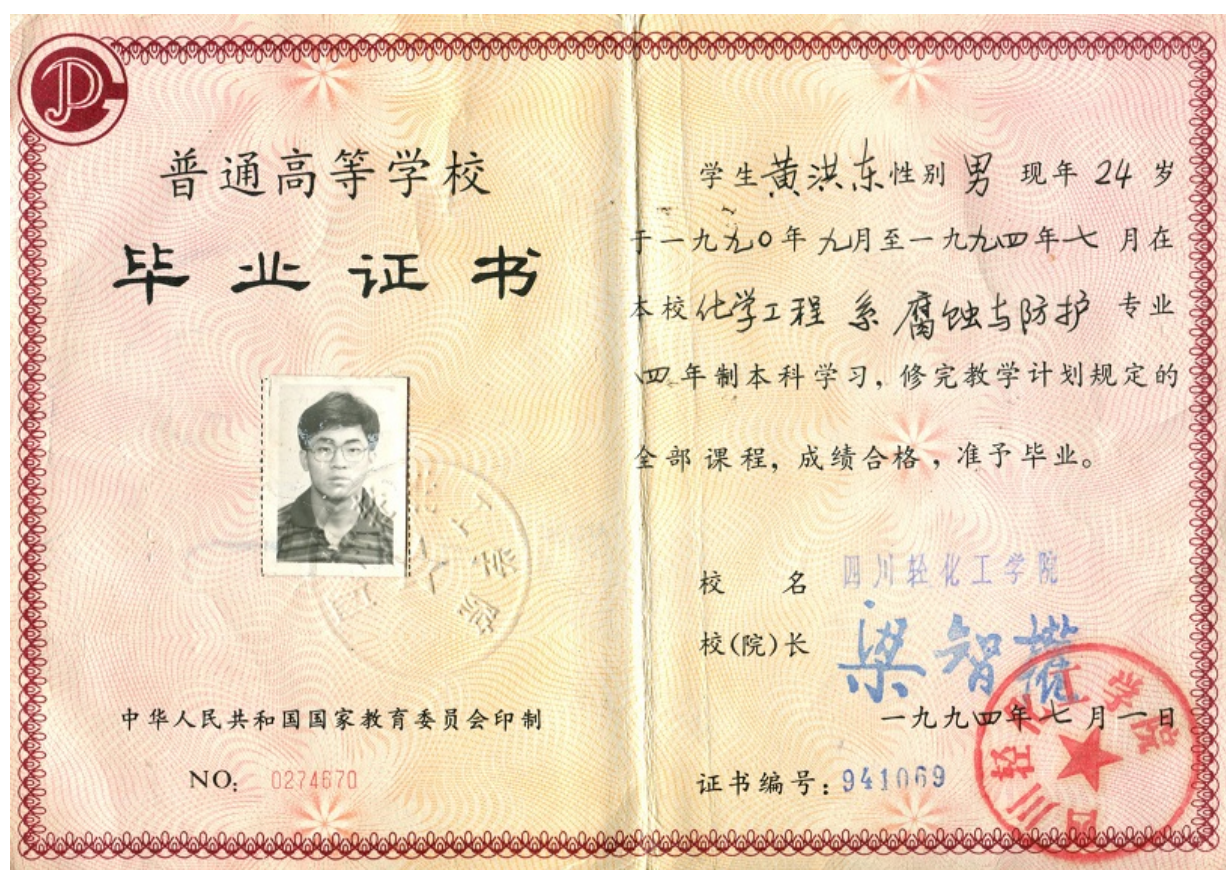 普通高等学校
毕业证书
中华人民共和国国家教育委员会印制
NO: 0274670
学生黄洪东性别男 现年24岁
于一九九〇年九月至一九九四年七月在
本校化学工程系腐蚀与防护专业
四年制本科学习，修完教学计划规定的
全部课程，成绩合格，准予毕业。
校 名 四川轻化工学院
校(院)长 梁智权
一九九四年七月一日
证书编号：941069
四川轻化工学院